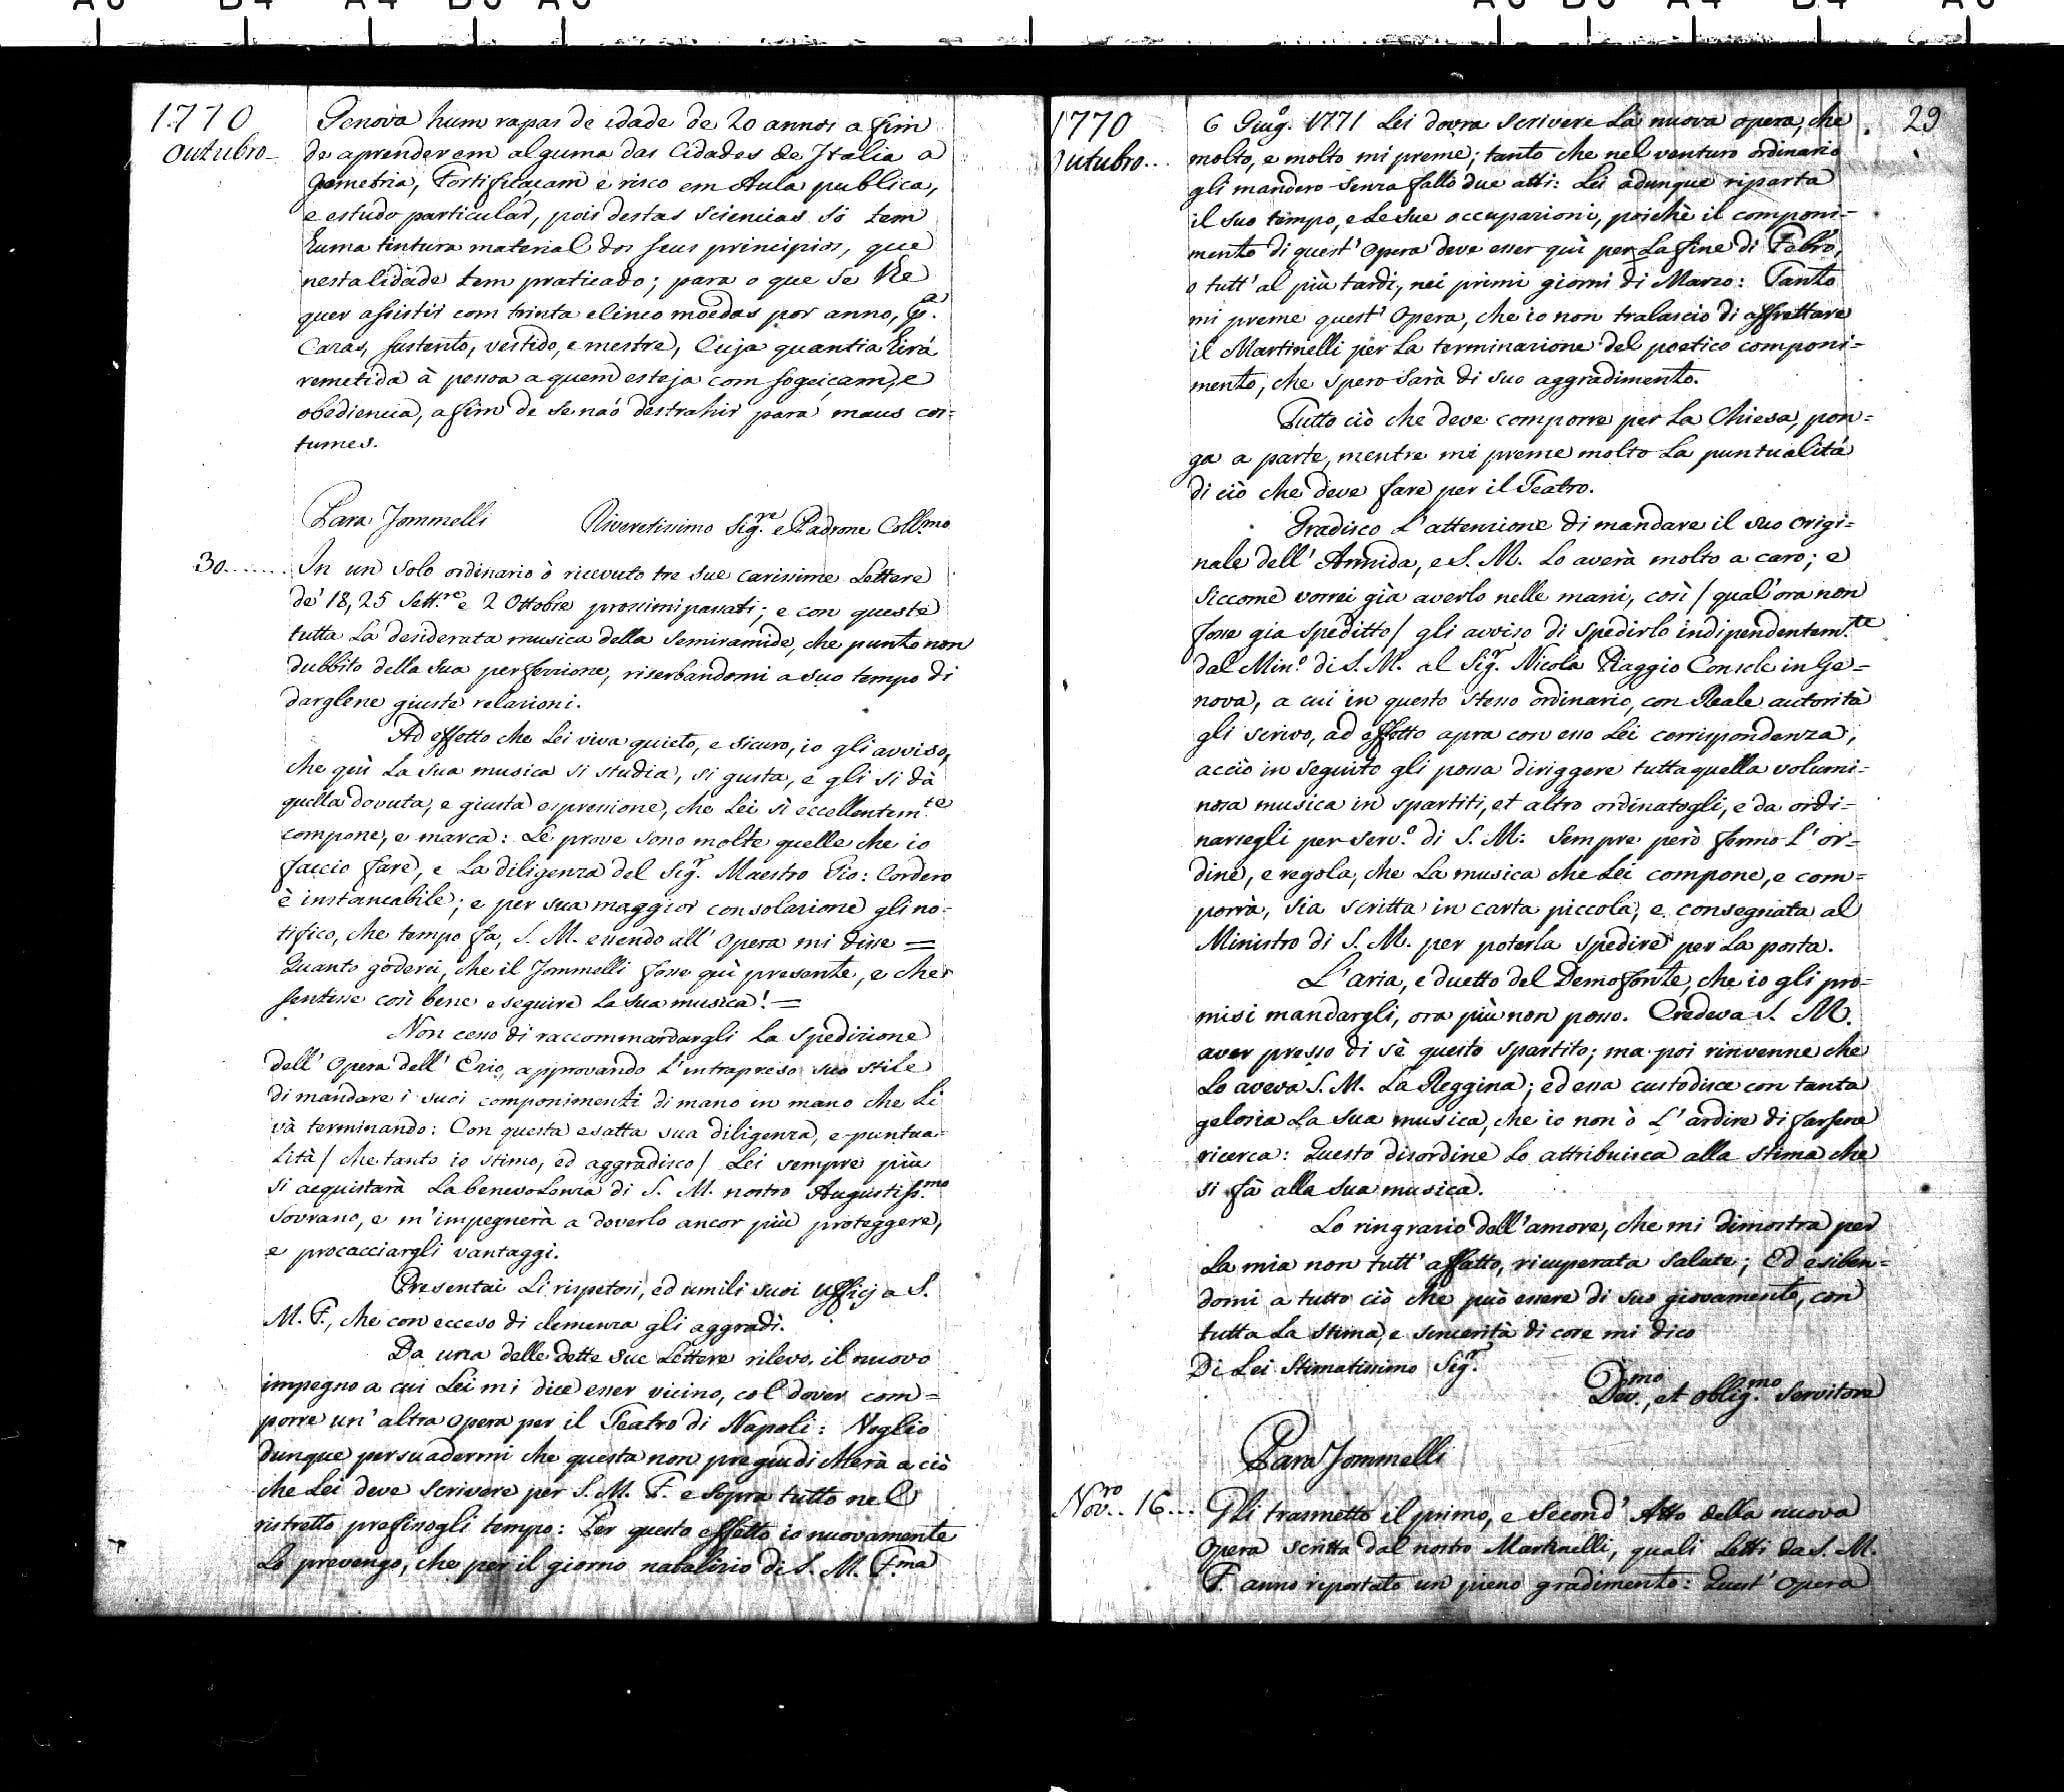 1770
Outubro
Genova hum rapas de idade de 20 annos a fim
de aprender em alguma das Cidades de Italia a
Gemetria, Fortificacam e risco em Aula publica,
e estudo particular, pois destas sciencias só tem
huma tintura material dos seus principios, que
nestalidade tem praticado; para o que se lhe
quer assistir com trinta e cinco moedas por anno, p.ª
Cazas, sustento, vestido, e mestre, Cuja quantia hirá
remetida à pessoa a quem esteja com sogeiçam, e
obediencia, afim de se naõ destrahir para maus cos=
tumes.
Para Jommelli Riveretissimo Sig.re e Padrone Coll.mo
30....... In un solo ordinario ò ricevuto tre sue carissime Lettere
de' 18, 25 Sett.re e 2 Ottobre prossimi passati; e con queste
tutta La desiderata musica della Semiramide, che punto non
dubbito della sua perfezzione, riserbandomi a suo tempo di
darglene giuste relazioni.
Ad effetto che Lei viva quieto, e sicuro, io gli avviso,
che quì La sua musica si studia, si gusta, e gli si dà
quella dovuta, e giusta espressione, che Lei sì eccellentem.te
compone, e marca: Le prove sono molte quelle che io
faccio fare, e La diligenza del Sig.r Maestro Gio: Cordero
è instancabile; e per sua maggior consolazione gli no=
tifico, che tempo fa, S. M. essendo all' Opera mi disse =
Quanto goderei, che il Jommelli fosse quì presente, e che
sentisse così bene eseguire La sua musica! =
Non cesso di raccommandargli La spedizione
dell' Opera dell' Ezio, approvando L'intrapreso suo stile
di mandare i suoi componimenti di mano in mano che Li
và terminando: Con questa esatta sua diligenza, e puntua=
Lità / che tanto io stimo, ed aggradisco / Lei sempre più
si acquistarà La benevolenza di S. M. nostro Augustiss.mo
Sovrano, e m'impegnerà a doverlo ancor più proteggere,
e procacciargli vantaggi.
Presentai Li rispetosi, ed umili suoi Ufficj a S.
M. F., che con ecceso di clemenza gli aggradì.
Da una delle dette sue Lettere rilevo, il nuovo
impegno a cui Lei mi dice esser vicino, col dover com=
porre un' altra Opera per il Teatro di Napoli: Voglio
dunque persuadermi che questa non pregiudicherà a ciò
che Lei deve scrivere per S. M. F. e sopra tutto nel
ristretto prefissogli tempo: Per questo effetto io nuovamente
Lo prevengo, che per il giorno natalizio di S. M. F.ma
1770
Outubro...
29
6 Giug.o 1771 Lei dovra scrivere La nuova opera, che
molto, e molto mi preme; tanto che nel venturo ordinario
gli mandero senza fallo due atti: Lei adunque riparta
il suo tempo, e Le sue occupazioni, poichè il componi=
mento di quest' Opera deve esser quì per La fine di Febb.ro,
o tutt' al più tardi, nei primi giorni di Marzo: Tanto
mi preme quest' Opera, che io non tralascio di affrettare
il Martinelli per La terminazione del poetico componi=
mento, che spero sarà di suo aggradimento.
Tutto ciò che deve comporre per La Chiesa, pon=
ga a parte, mentre mi preme molto La puntualità
di ciò che deve fare per il Teatro.
Gradisco L'attenzione di mandare il suo Origi=
nale dell' Armida, e S. M. Lo averà molto a caro; e
siccome vorrei già averlo nelle mani, così / qual'ora non
fosse gia speditto / gli avviso di spedirlo indipendentem.te
dal Min.o di S. M. al Sig.r Nicola Piaggio Console in Ge=
nova, a cui in questo stesso ordinario, con Reale autorità
gli scrivo, ad effetto apra con esso Lei corrispondenza,
acciò in seguito gli possa diriggere tutta quella volumi=
nosa musica in spartiti, et altro ordinatogli, e da ordi=
narsegli per serv.o di S. M: Sempre però fermo L' or=
dine, e regola, che La musica che Lei compone, e com=
porrà, sia scritta in carta piccola, e consegnata al
Ministro di S. M. per poterla spedire per La posta.
L'aria, e duetto del Demofonte, che io gli pro=
misi mandargli, ora più non posso. Credeva S. M.
aver presso di sè questo spartito; ma poi rinvenne che
Lo aveva S. M. La Reggina; ed essa custodisce con tanta
gelosia La sua musica, che io non ò L' ardire di farsene
ricerca: Questo disordine Lo attribuisca alla stima che
si fà alla sua musica.
Lo ringrazio dell'amore, che mi dimostra per
La mia non tutt' affatto, ricuperata salute; Ed esiben=
domi a tutto ciò che può essere di suo giovamento, con
tutta La stima, e sincerità di core mi dico
Di Lei Stimatissimo Sig.r
Dev.mo, et oblig.mo Servitore
Para Jommelli
Nov.ro 16... Gli trasmetto il primo, e second' Atto della nuova
Opera scritta dal nostro Martinelli, quali Letti da S. M.
F. anno riportato un pieno gradimento: Quest' Opera